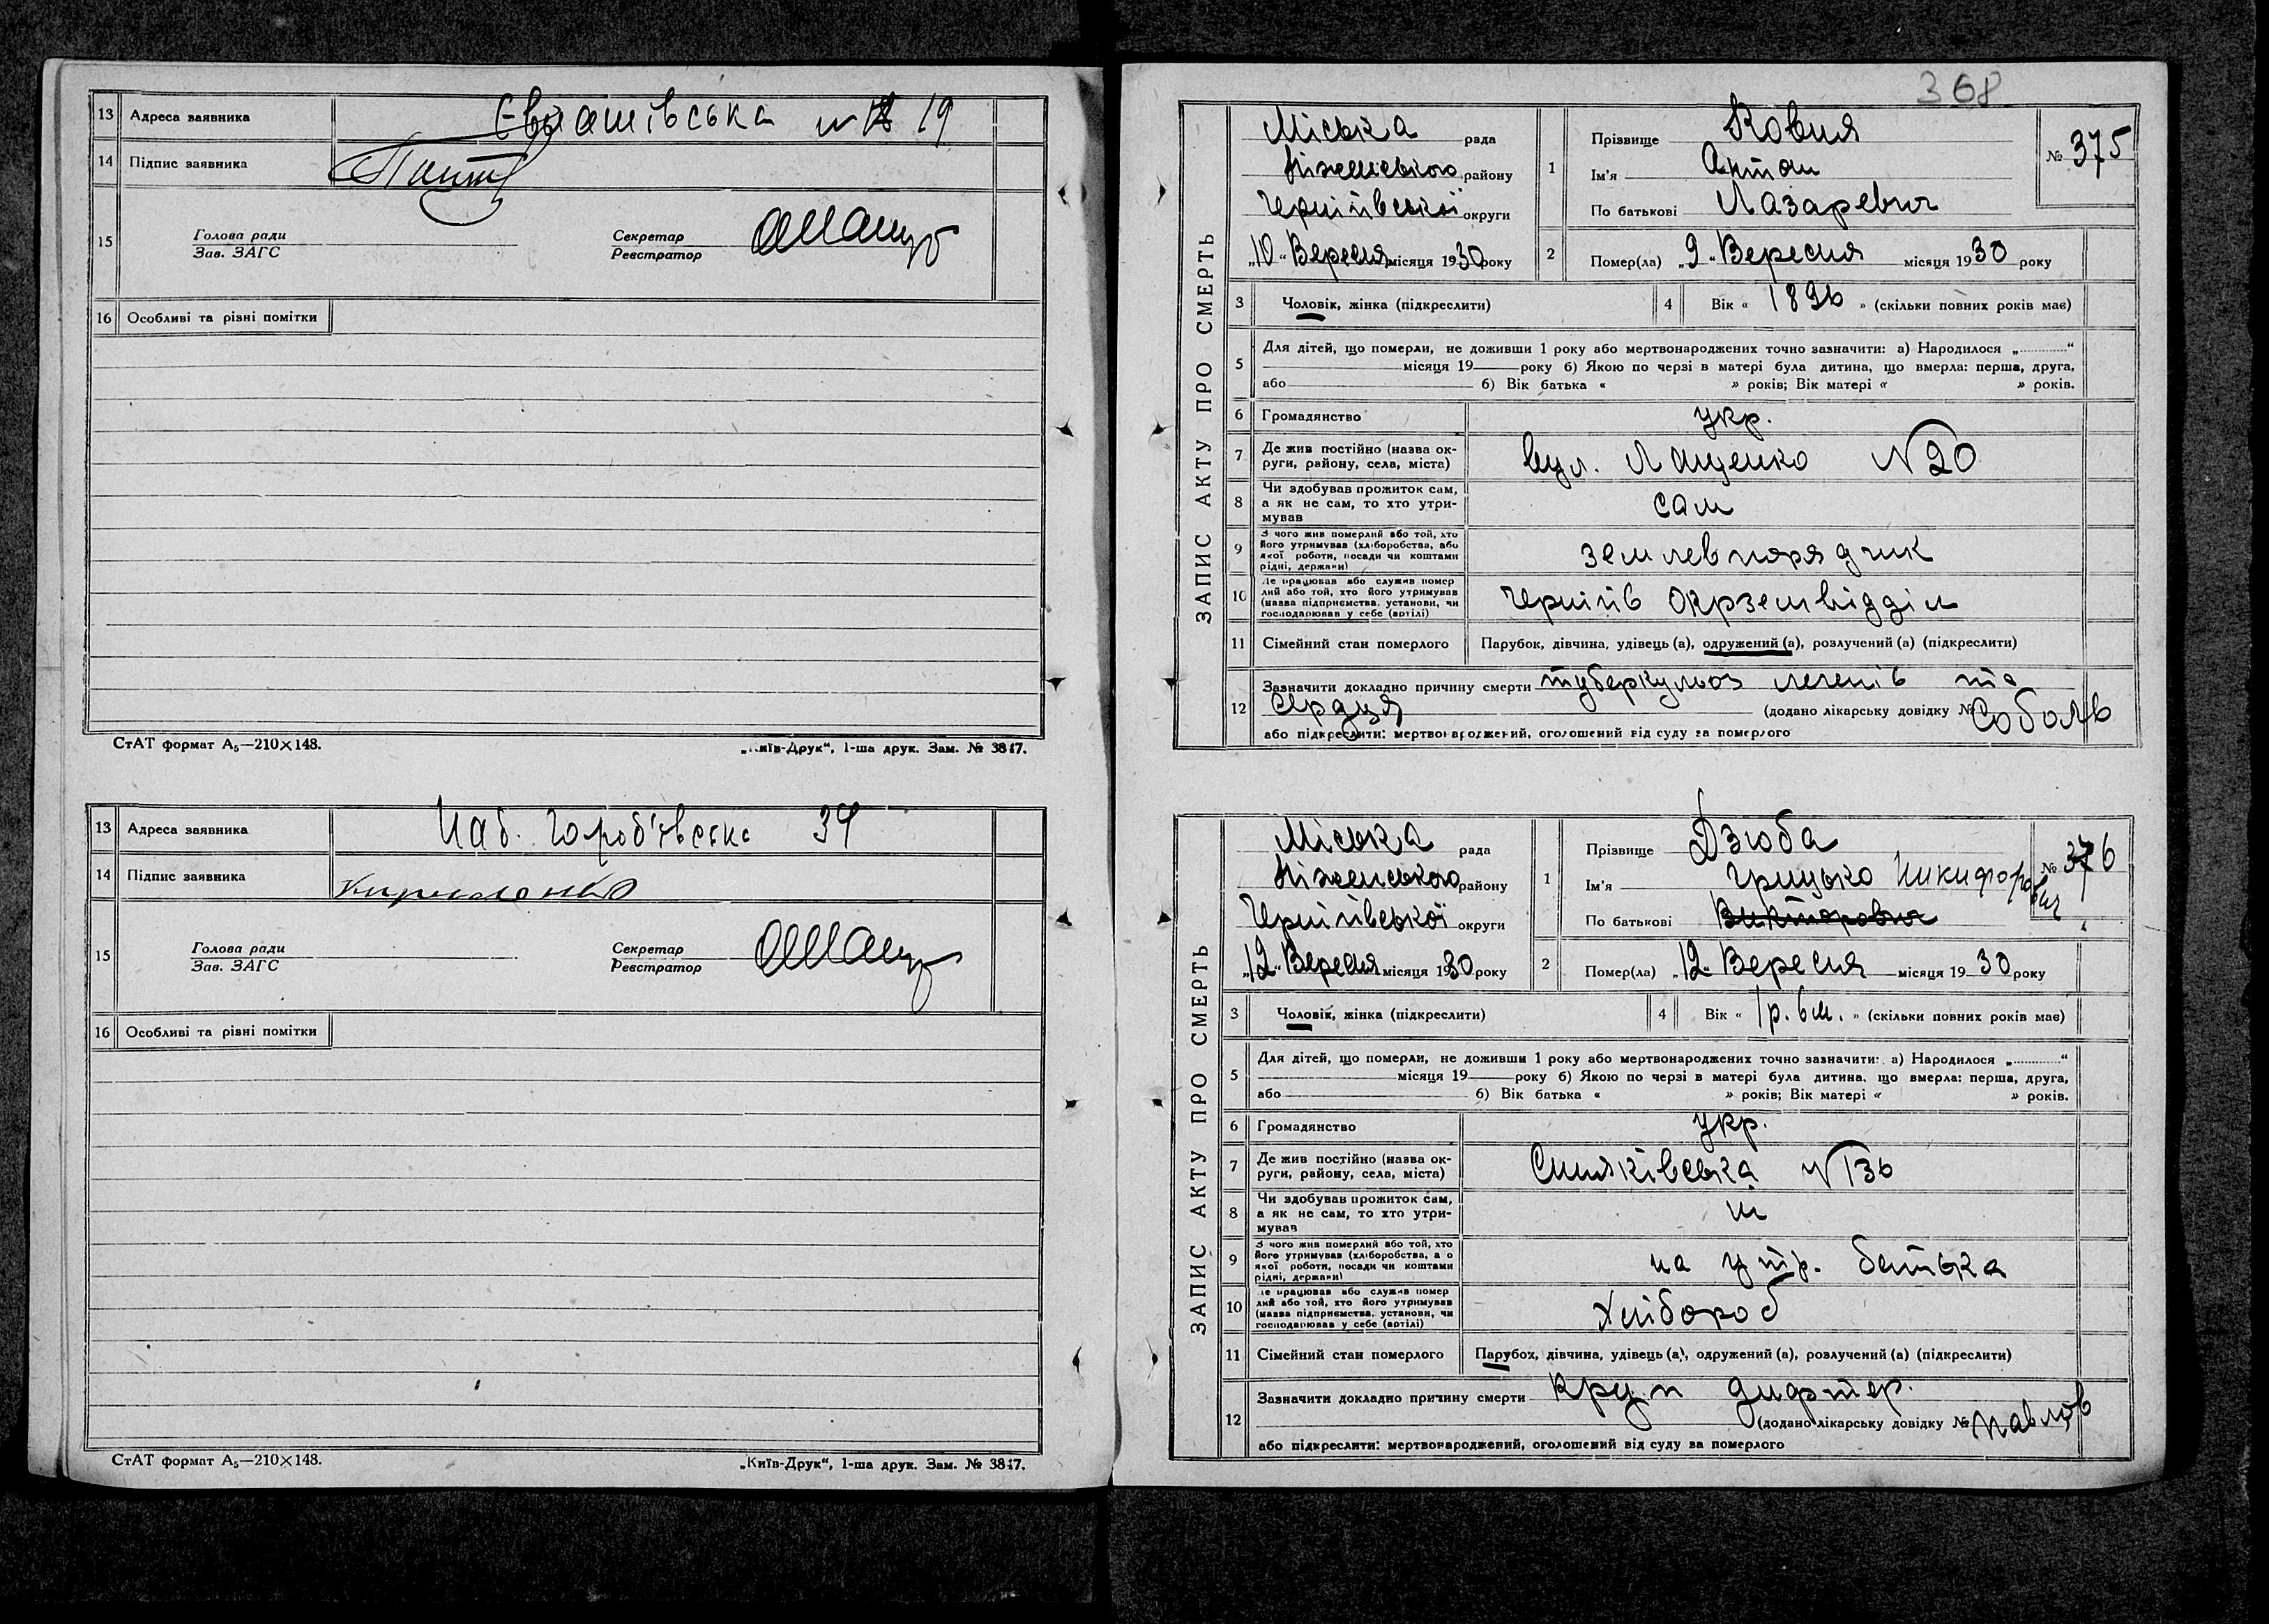 13 Адреса заявника Євлашівська № 19
14 Підпис заявника
15 Голова ради Секретар
Зав. ЗАГС Реєстратор
16 Особливі та різні помітки
СтАТ формат А₅—210×148. „Київ-Друк“, 1-ша друк. Зам. № 3847.
13 Адреса заявника Наб. Гороб'ївська 34
14 Підпис заявника Кириленко
15 Голова ради Секретар
Зав. ЗАГС Реєстратор
16 Особливі та різні помітки
СтАТ формат А₅—210×148. „Київ-Друк“, 1-ша друк. Зам. № 3847.
368
ЗАПИС АКТУ ПРО СМЕРТЬ
Міська рада
Ніженського району
Чернігівської округи
„10“ Вересня місяця 1930 року
1 Прізвище Ковня
Ім'я Антон
По батькові Лазаревич
№ 375
2 Помер(ла) „9“ Вересня місяця 1930 року
3 Чоловік, жінка (підкреслити) 4 Вік « 1896 » (скільки повних років має)
5 Для дітей, що померли, не доживши 1 року або мертвонароджених точно зазначити: а) Народилося „............“
місяця 19 року б) Якою по черзі в матері була дитина, що вмерла: перша, друга,
або б) Вік батька « » років; Вік матері « » років.
6 Громадянство укр.
7 Де жив постійно (назва ок-
руги, району, села, міста) вул. Лащенко № 20
8 Чи здобував прожиток сам,
а як не сам, то хто утри-
мував сам
9 З чого жив померлий або той, хто
його утримував (хліборобства, або
якої роботи, посади чи коштами
рідні, держави) землевпорядчик
10 Де працював або служив помер
лий або той, хто його утримував
(назва підприємства, установи, чи
господарював у себе (артілі) Чернігів Окрземвідділ
11 Сімейний стан померлого Парубок, дівчина, удівець (а), одружений (а), розлучений (а) (підкреслити)
12 Зазначити докладно причину смерти туберкульоз легенів та
сердця (додано лікарську довідку № Соболь
або підкреслити: мертвонароджений, оголошений від суду за померлого
ЗАПИС АКТУ ПРО СМЕРТЬ
Міська рада
Ніженського району
Чернігівської округи
„12“ Вересня місяця 1930 року
1 Прізвище Дзюба
Ім'я Грицько Никифорович
По батькові Викторович
№ 376
2 Помер(ла) „12“ Вересня місяця 1930 року
3 Чоловік, жінка (підкреслити) 4 Вік « 1 р. 6 м. » (скільки повних років має)
5 Для дітей, що померли, не доживши 1 року або мертвонароджених точно зазначити: а) Народилося „............“
місяця 19 року б) Якою по черзі в матері була дитина, що вмерла: перша, друга,
або б) Вік батька « » років; Вік матері « » років.
6 Громадянство укр.
7 Де жив постійно (назва ок-
руги, району, села, міста) Синяківська № 136
8 Чи здобував прожиток сам,
а як не сам, то хто утри-
мував ні
9 З чого жив померлий або той, хто
його утримував (хліборобства, а о
якої роботи, посади чи коштами
рідні, держави) на утр. батька
10 Де працював або служив помер
лий або той, хто його утримував
(назва підприємства, установи, чи
господарював у себе (артілі) Хлібороб
11 Сімейний стан померлого Парубох, дівчина, удівець (а), одружений (а), розлучений (а) (підкреслити)
12 Зазначити докладно причину смерти круп дифтер.
(додано лікарську довідку № Павлов
або підкреслити: мертвонароджений, оголошений від суду за померлого